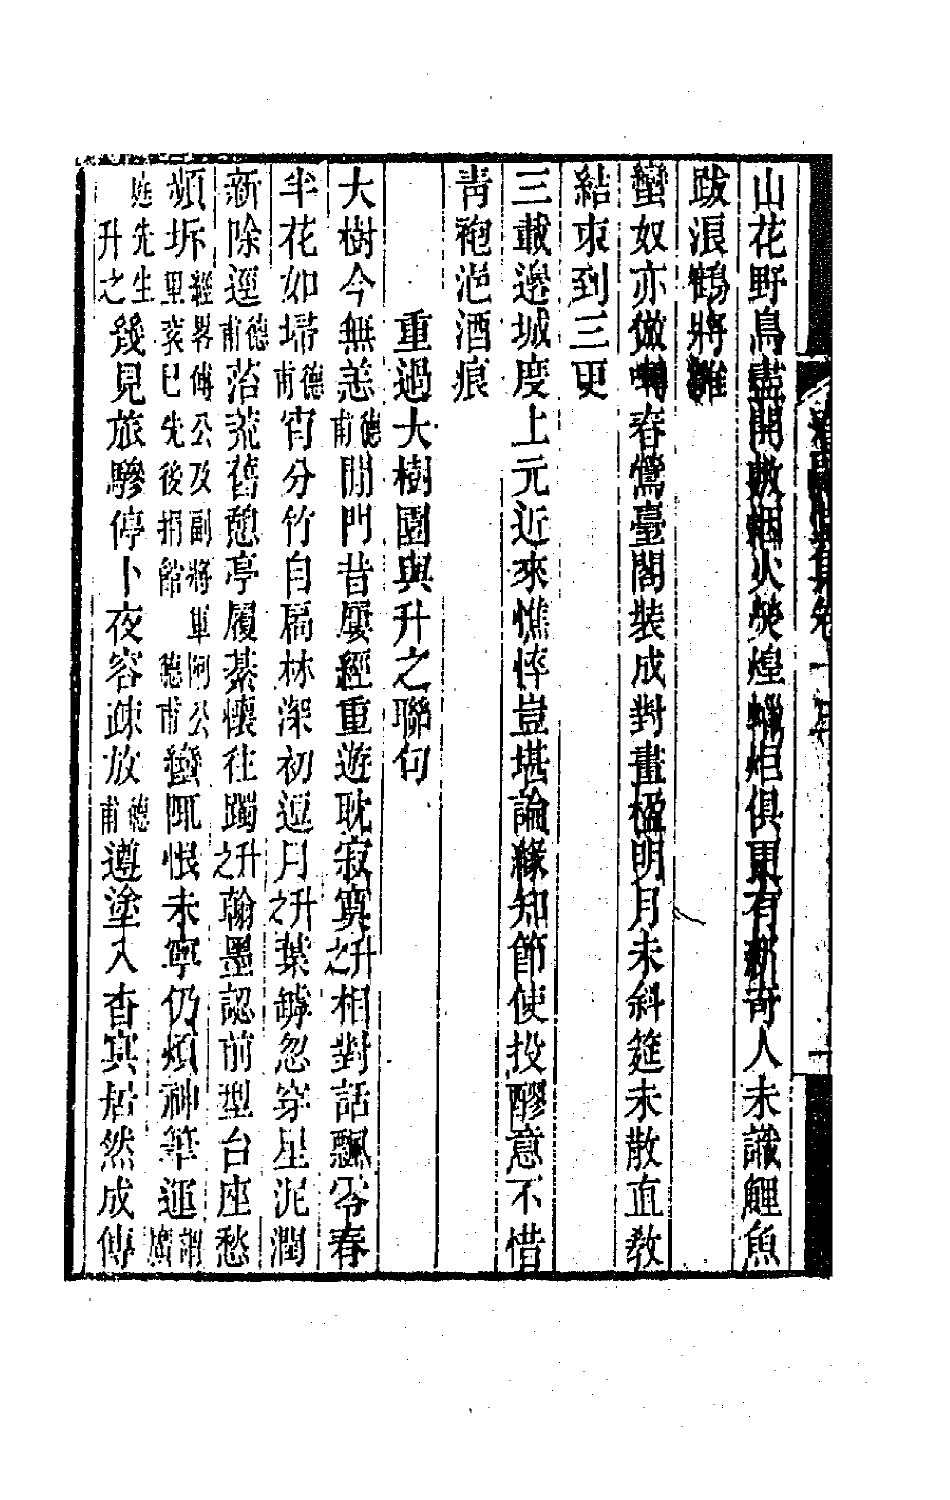 山花野鳥盡開數烟火熒煌蠟炬俱更有新奇人未識鯉魚
跋浪鶴將雛
蠻奴亦倣囀春鶯臺閣裝成對畫楹明月未斜筵未散直敎
結束到三更
三載邊城度上元近來憔悴豈堪論緣知節使投醪意不惜
青袍浥酒痕
重過大樹園與升之聯句
大樹今無恙德甫閒門昔屢經重遊耽寂寞升之相對話飄零春
半花如埽德甫宵分竹自扃林深初逗月升之葉罅忽穿星泥潤
新除逕德甫苔荒舊憩亭履綦懷往躅升之翰墨認前型台座愁
頻坼經畧傅公及副將軍阿公里袞已先後捐館德甫蠻陬恨未寧仍煩神筆運謂
庭先生升之幾見旅驂停卜夜容疎放德甫遵塗入杳冥居然成傳